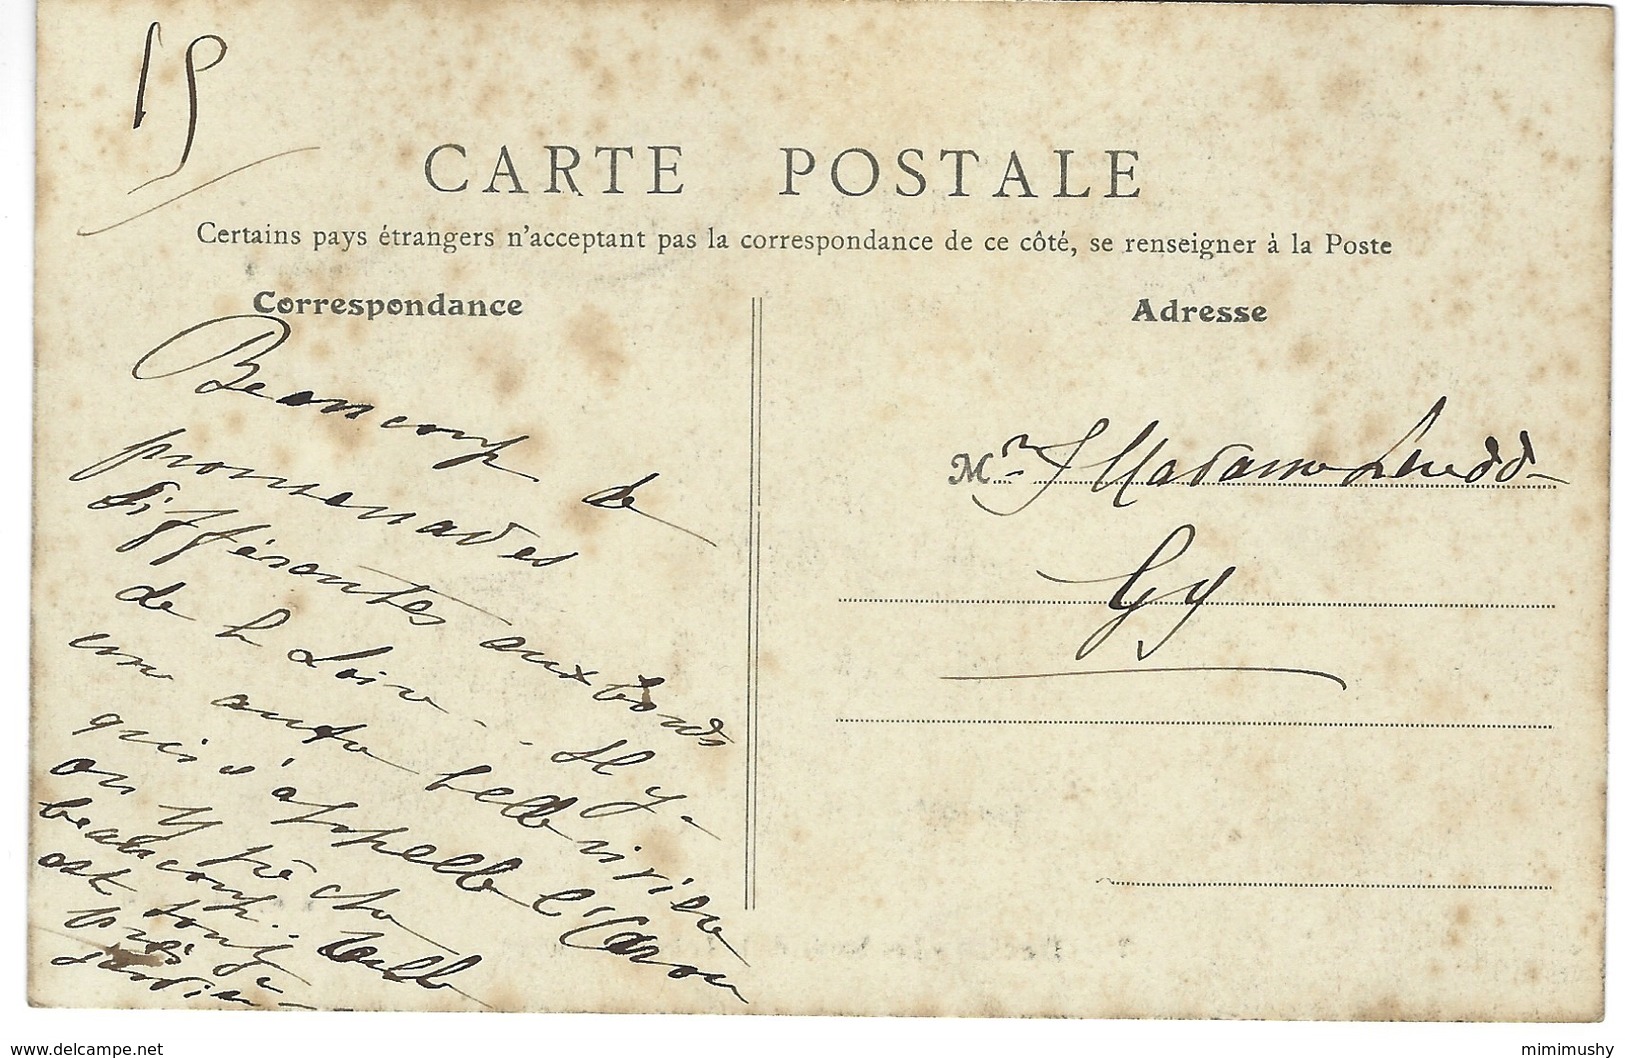 15
CARTE POSTALE
Certains pays étrangers n'acceptant pas la correspondance de ce côté, se renseigner à la Poste
Correspondance
Beaucoup de
promenades
différentes aux bords
de la Loire. Il y a
une autre belle rivière
qui s'appelle l'Aron
on y pêche
beaucoup. Elle
est tout
près
Adresse
Mr & Madame
Gy
www.delcampe.net
mimimushy